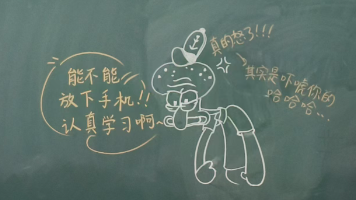 能不能
放下手机!!
认真学习啊~
真的怒了!!!
其实是吓唬你的
哈哈哈...